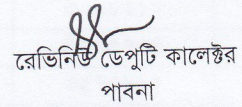 রেভিনিউ ডেপুটি কালেক্টর
পাবনা